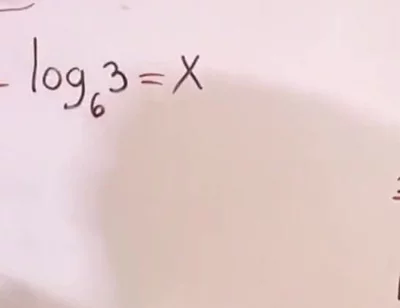 log₆3 = x